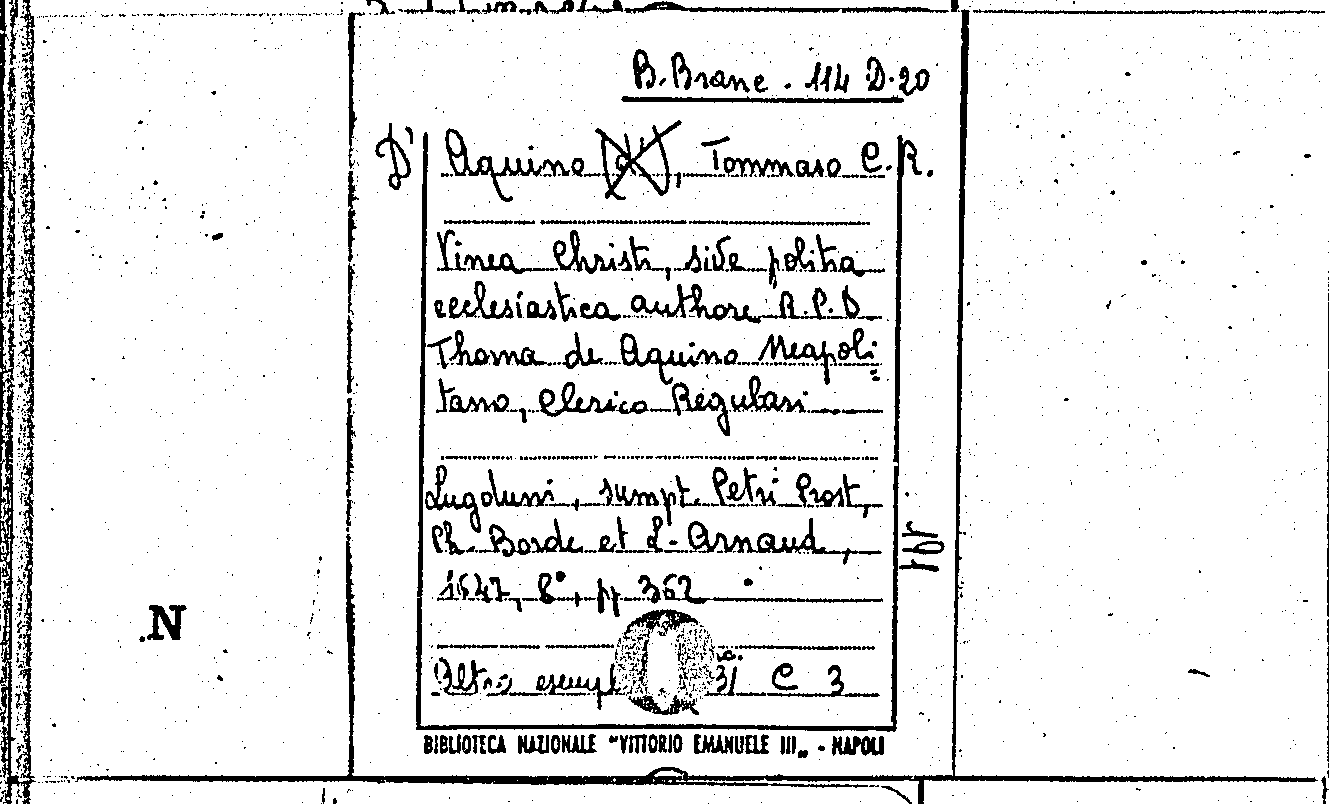 B. Branc. 114 D. 20
D' Aquino (d'), Tommaso C. R.
Vinea Christi, sive politia
ecclesiastica authore R. P. D.
Thoma de Aquino Neapoli=
tano, Clerico Regulari
Lugduni, sumpt. Petri Prost,
Ph. Borde et L. Arnaud,
1647, 8°, pp 362
Altro esempl 31 C 3
BIBLIOTECA NAZIONALE "VITTORIO EMANUELE III„ - NAPOLI
N